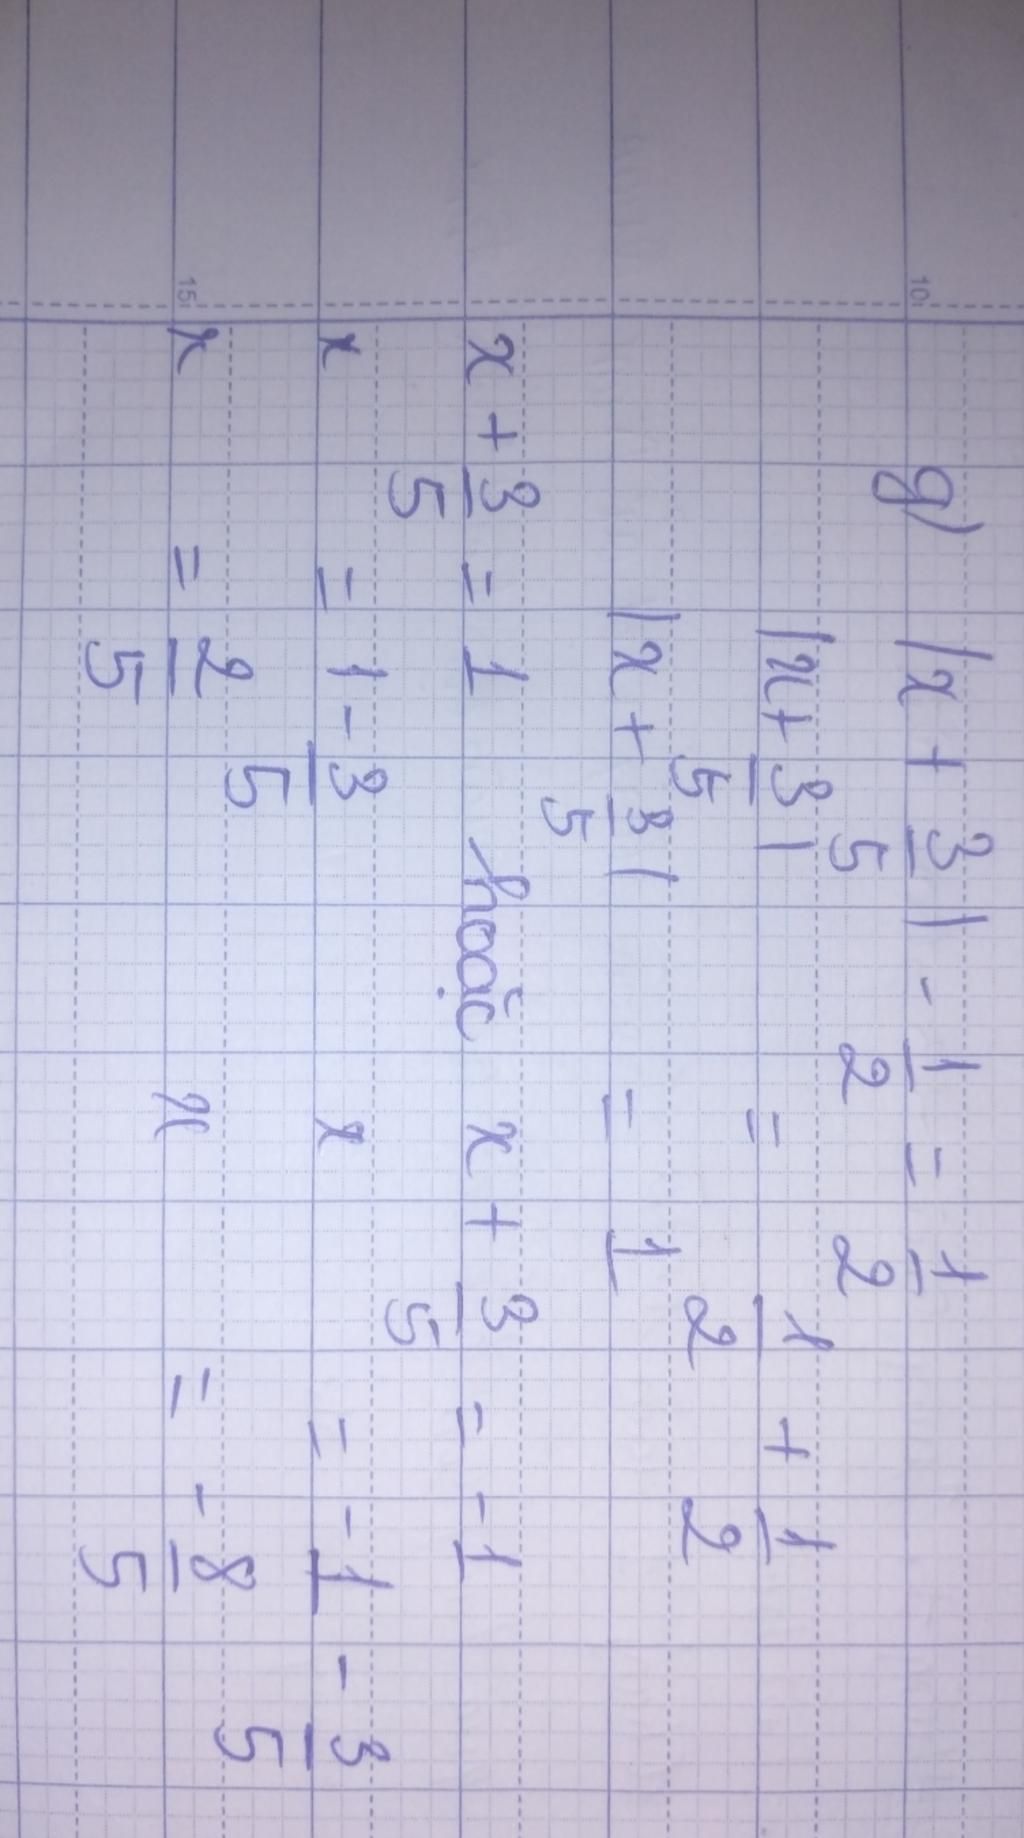 g) |x + 3/5| - 1/2 = 1/2
|x + 3/5| = 1/2 + 1/2
|x + 3/5| = 1
x + 3/5 = 1 hoặc x + 3/5 = -1
x = 1 - 3/5 x = -1 - 3/5
x = 2/5 x = -8/5
10
15